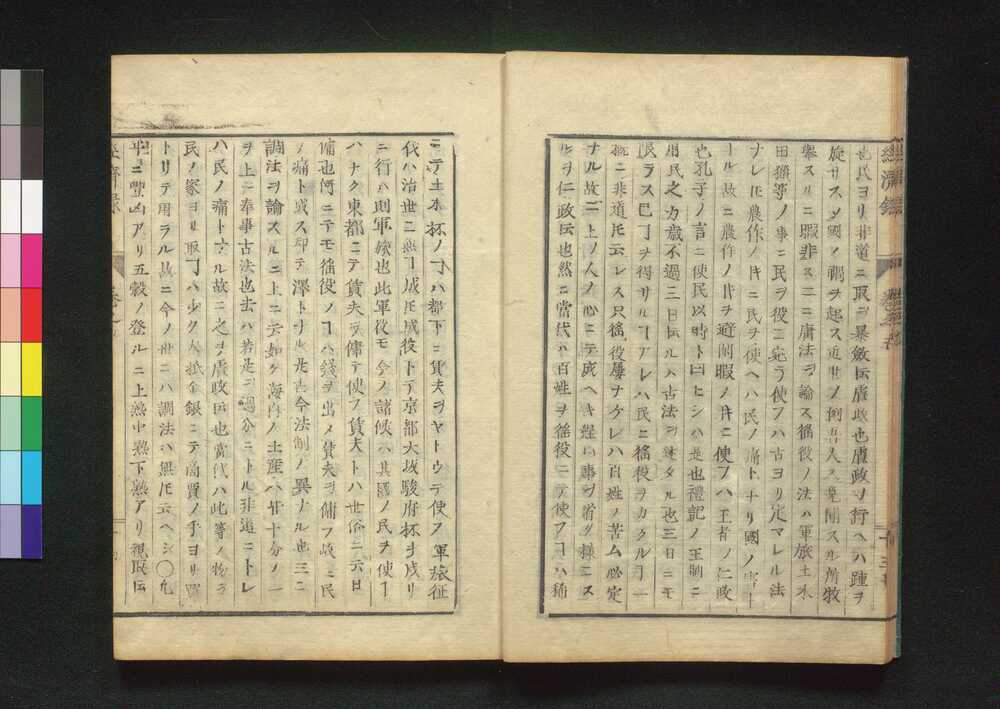 也民ヨリ非道ニ取ヲ暴斂ト云虐政也虐政ヲ行ヘハ踵ヲ
旋サスメ國ノ禍ヲ起ス
擧スルニ暇非ス二ニ庸法ヲ論ス徭役ノ法ハ軍旅土木
田獵等ノ事ニ民ヲ役ニ充テ使フハ古ヨリ定マレル法
ナレ𪜈農作ノ時ニ民ヲ使ヘハ民ノ痛トナリ國ノ害ト
ナル故ニ農作ノ時ヲ避閑暇ノ時ニ使フハ王者ノ仁政
也孔子ノ言ニ使民以時ト曰ヒシハ是也禮記ノ王制ニ
用民之力歳不過三日ト云ルハ古法ヲ述タル也三日ニモ
限ラス已ヿヲ得サルヿアレハ民ニ徭役ヲカクル
概ニ非道𪜈云レス只徭役屢ナケレハ百姓ノ苦ム必定
ナル故ニ上ノ人ノ心ニテ成ヘキ程ハ事ヲ省ク様ニス
ルヲ仁政ト云也然ニ當代ハ百姓ヲ徭役ニテ使フヿハ稀
ニテ土木抔ノヿハ都下ニ賃夫ヲヤトウテ使フ軍旅征
伐ハ治世ニ無ヿ城𪜈戍役トテ京都大坂駿府抔ヲ戍リ
ニ行ハ則軍旅也此軍役モ今ノ諸侯ハ其國ノ民ヲ使ヿ
ハナク東都ニテ賃夫ヲ傭テ使フ賃夫トハ世俗ニ云日
傭也何ニテモ徭役ノヿハ錢ヲ出メ賃夫ヲ傭フ故ニ民
ノ痛ト成ス却テ澤トナル是古今法制ノ異ナル也三ニ
調法ヲ論スルニ上ニ云如ク海内ノ土産ハ廿十分ノ一
ヲ上ニ奉事古法也去ハ若是ヲ過分ニトル非道ニトレ
ハ民ノ痛トナル故ニ之ヲ虐政ト云也當代ハ此等ノ物ヲ
民ノ家ヨリ取ヿハ少ク大抵金銀ニテ商賈ノ手ヨリ買
トリテ用ラル故ニ今ノ世ニハ調法ハ無𪜈云ヘシ〇凡
年ニ豐凶アリ五穀ノ登ルニ上熟中熟下熟アリ視取ト云
經濟錄